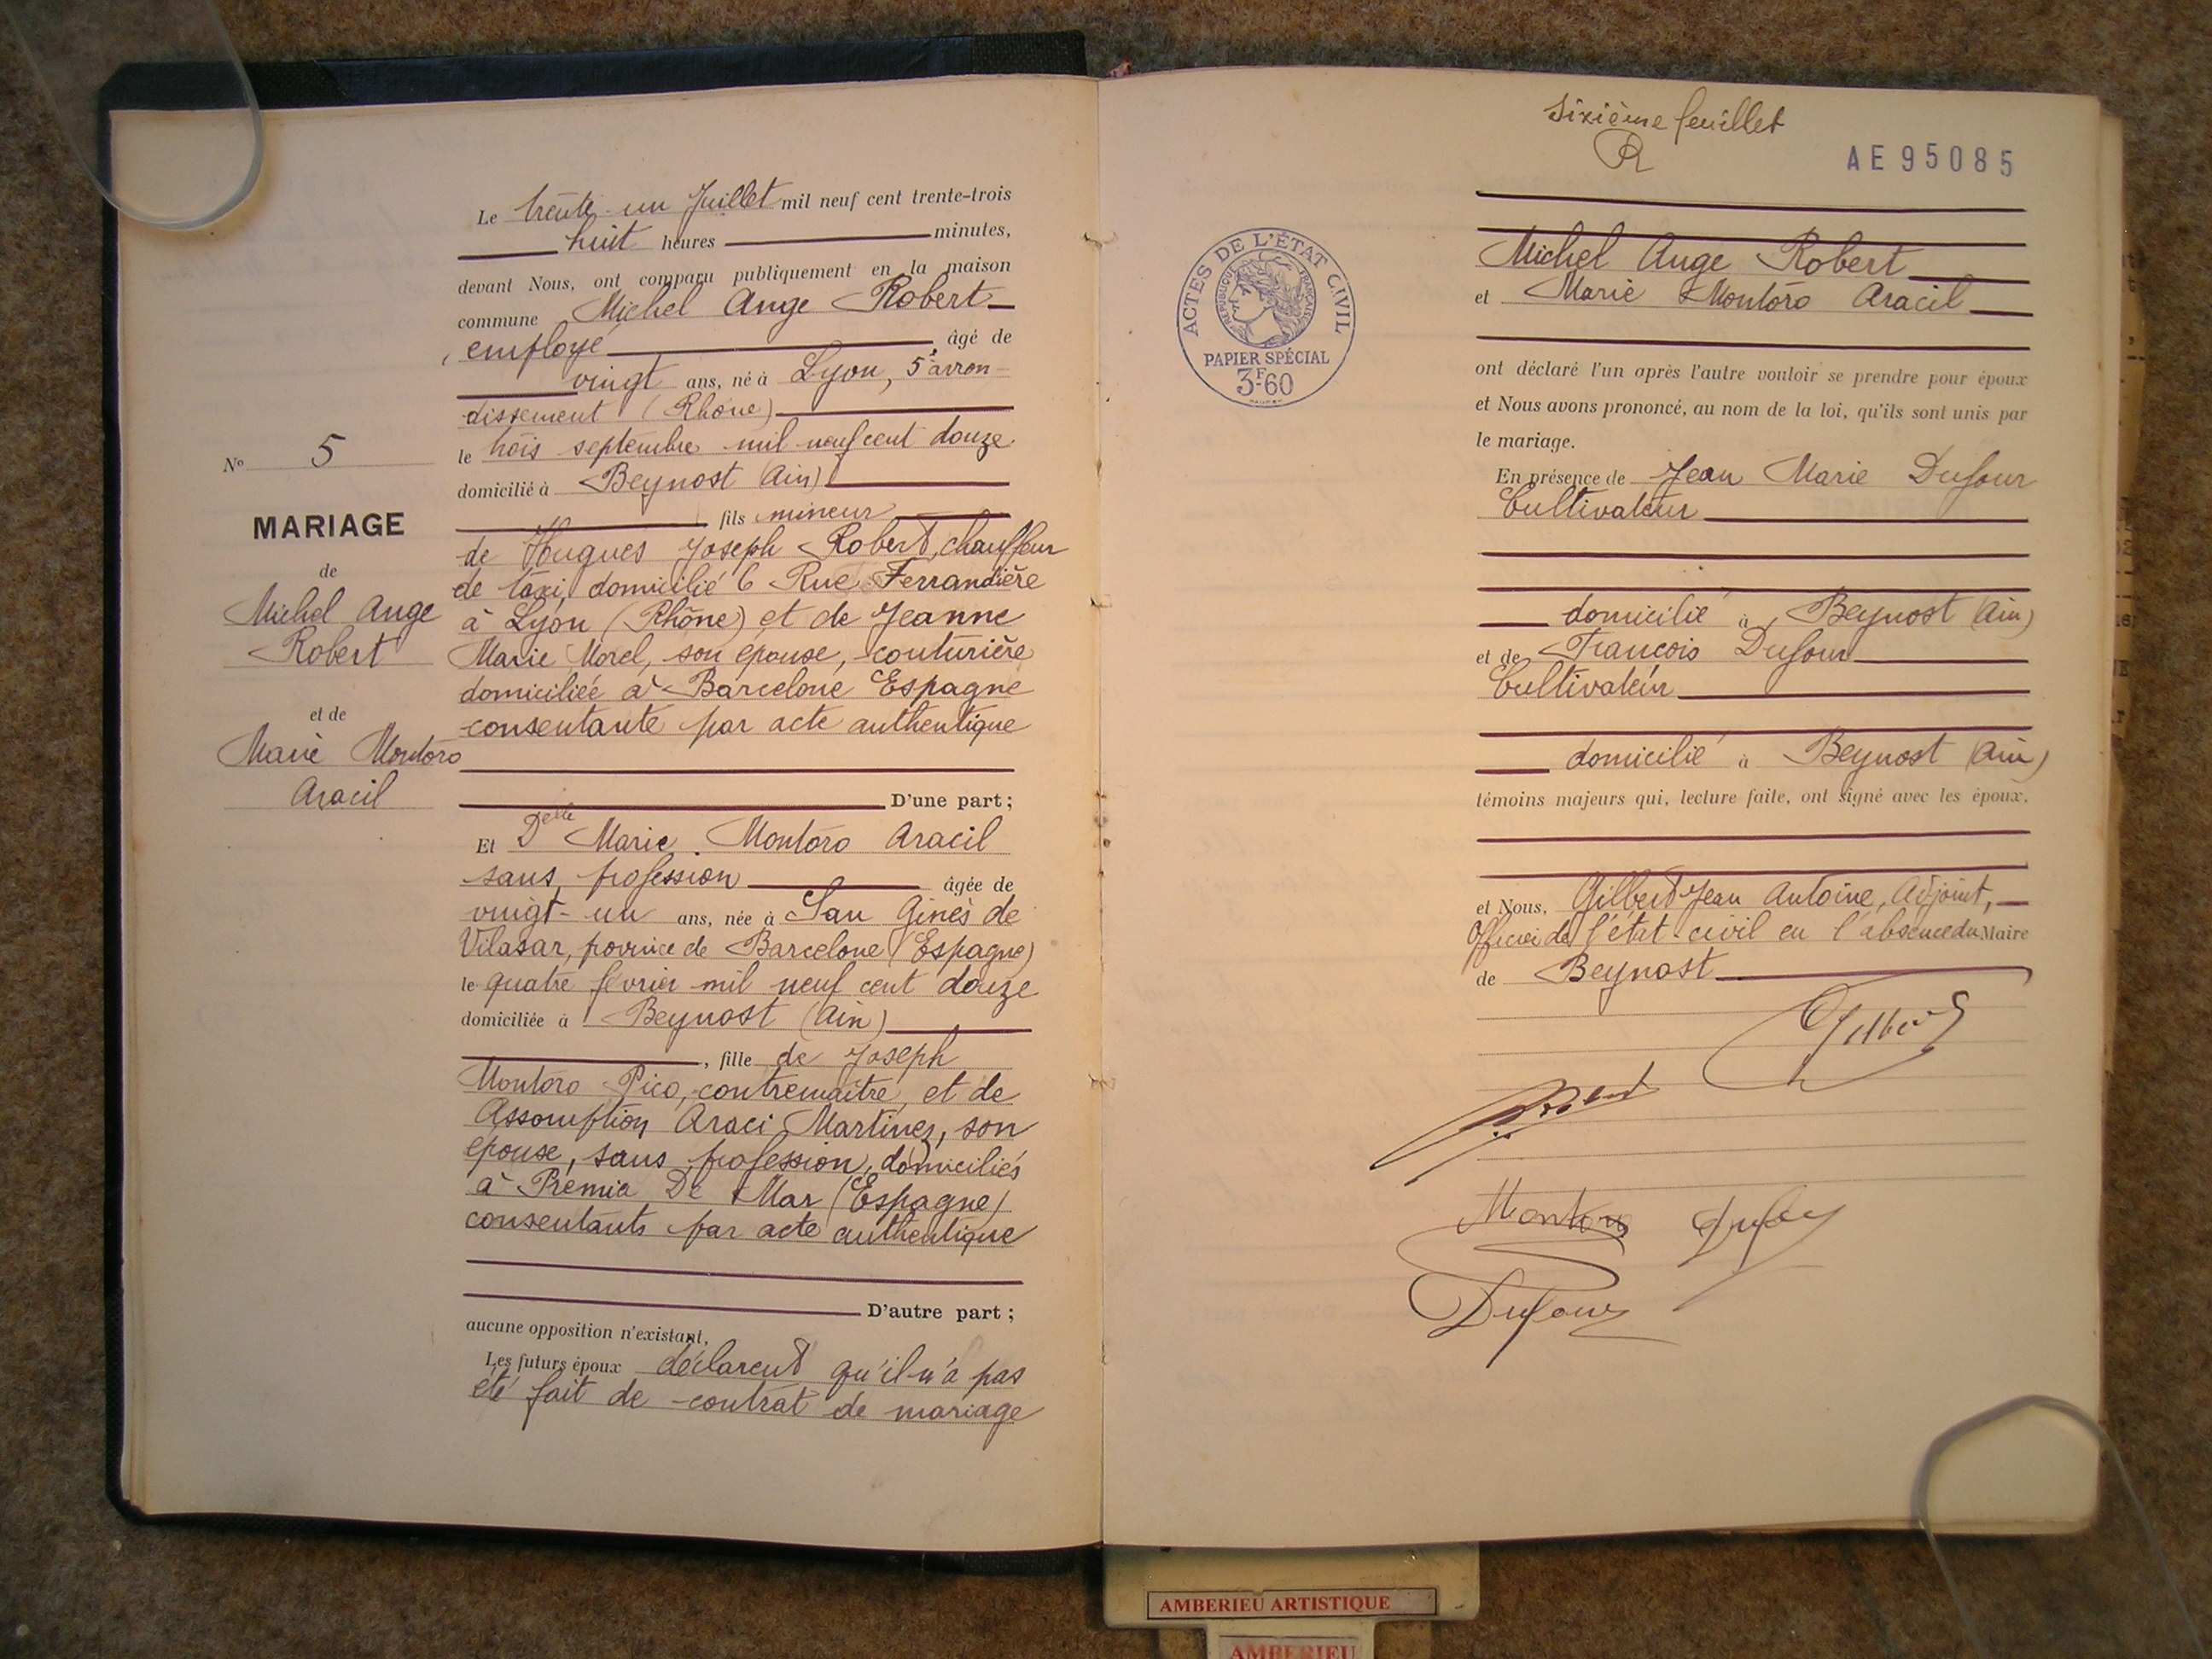 Le trente un Juillet mil neuf cent trente-trois
huit heures minutes,
devant Nous, ont comparu publiquement en la maison
commune Michel Ange Robert
employé âgé de
vingt ans, né à Lyon, 5e arron-
dissement (Rhône)
le trois septembre mil neuf cent douze
domicilié à Beynost (Ain)
fils mineur
de Hugues Joseph Robert, chauffeur
de taxi, domicilié 6 Rue Ferrandière
à Lyon (Rhône) et de Jeanne
Marie Morel, son épouse, couturière
domiciliée à Barcelone Espagne
consentante par acte authentique
D'une part ;
Et Delle Marie Montoro Aracil
sans profession âgée de
vingt-un ans, née à San Ginès de
Vilasar, povince de Barcelone (Espagne)
le quatre février mil neuf cent douze
domiciliée à Beynost (Ain)
, fille de Joseph
Montoro Pico, contremaitre, et de
Assomption Araci Martinez, son
épouse, sans profession, domiciliés
à Prémia De Mar (Espagne)
consentants par acte authentique
D'autre part ;
aucune opposition n'existant,
Les futurs époux déclarent qu'il n'a pas
été fait de contrat de mariage
No 5
MARIAGE
de
Michel Ange
Robert
et de
Marie Montoro
Aracil
Sixième feuillet
R
AE95085
ACTES DE L'ÉTAT CIVIL
RÉPUBLIQUE FRANÇAISE
PAPIER SPÉCIAL
3F60
Michel Ange Robert
et Marie Montoro Aracil
ont déclaré l'un après l'autre vouloir se prendre pour époux
et Nous avons prononcé, au nom de la loi, qu'ils sont unis par
le mariage.
En présence de Jean Marie Dufour
Cultivateur
domicilié à Beynost (Ain)
et de François Dufour
Cultivateur
domicilié à Beynost (Ain)
témoins majeurs qui, lecture faite, ont signé avec les époux,
et Nous, Gilbert Jean Antoine, Adjoint,
Officier de l'état-civil en l'absence du Maire
de Beynost
Gilbert
Robert
Montoro
Dufour
Dufour
AMBERIEU ARTISTIQUE
AMBERIEU